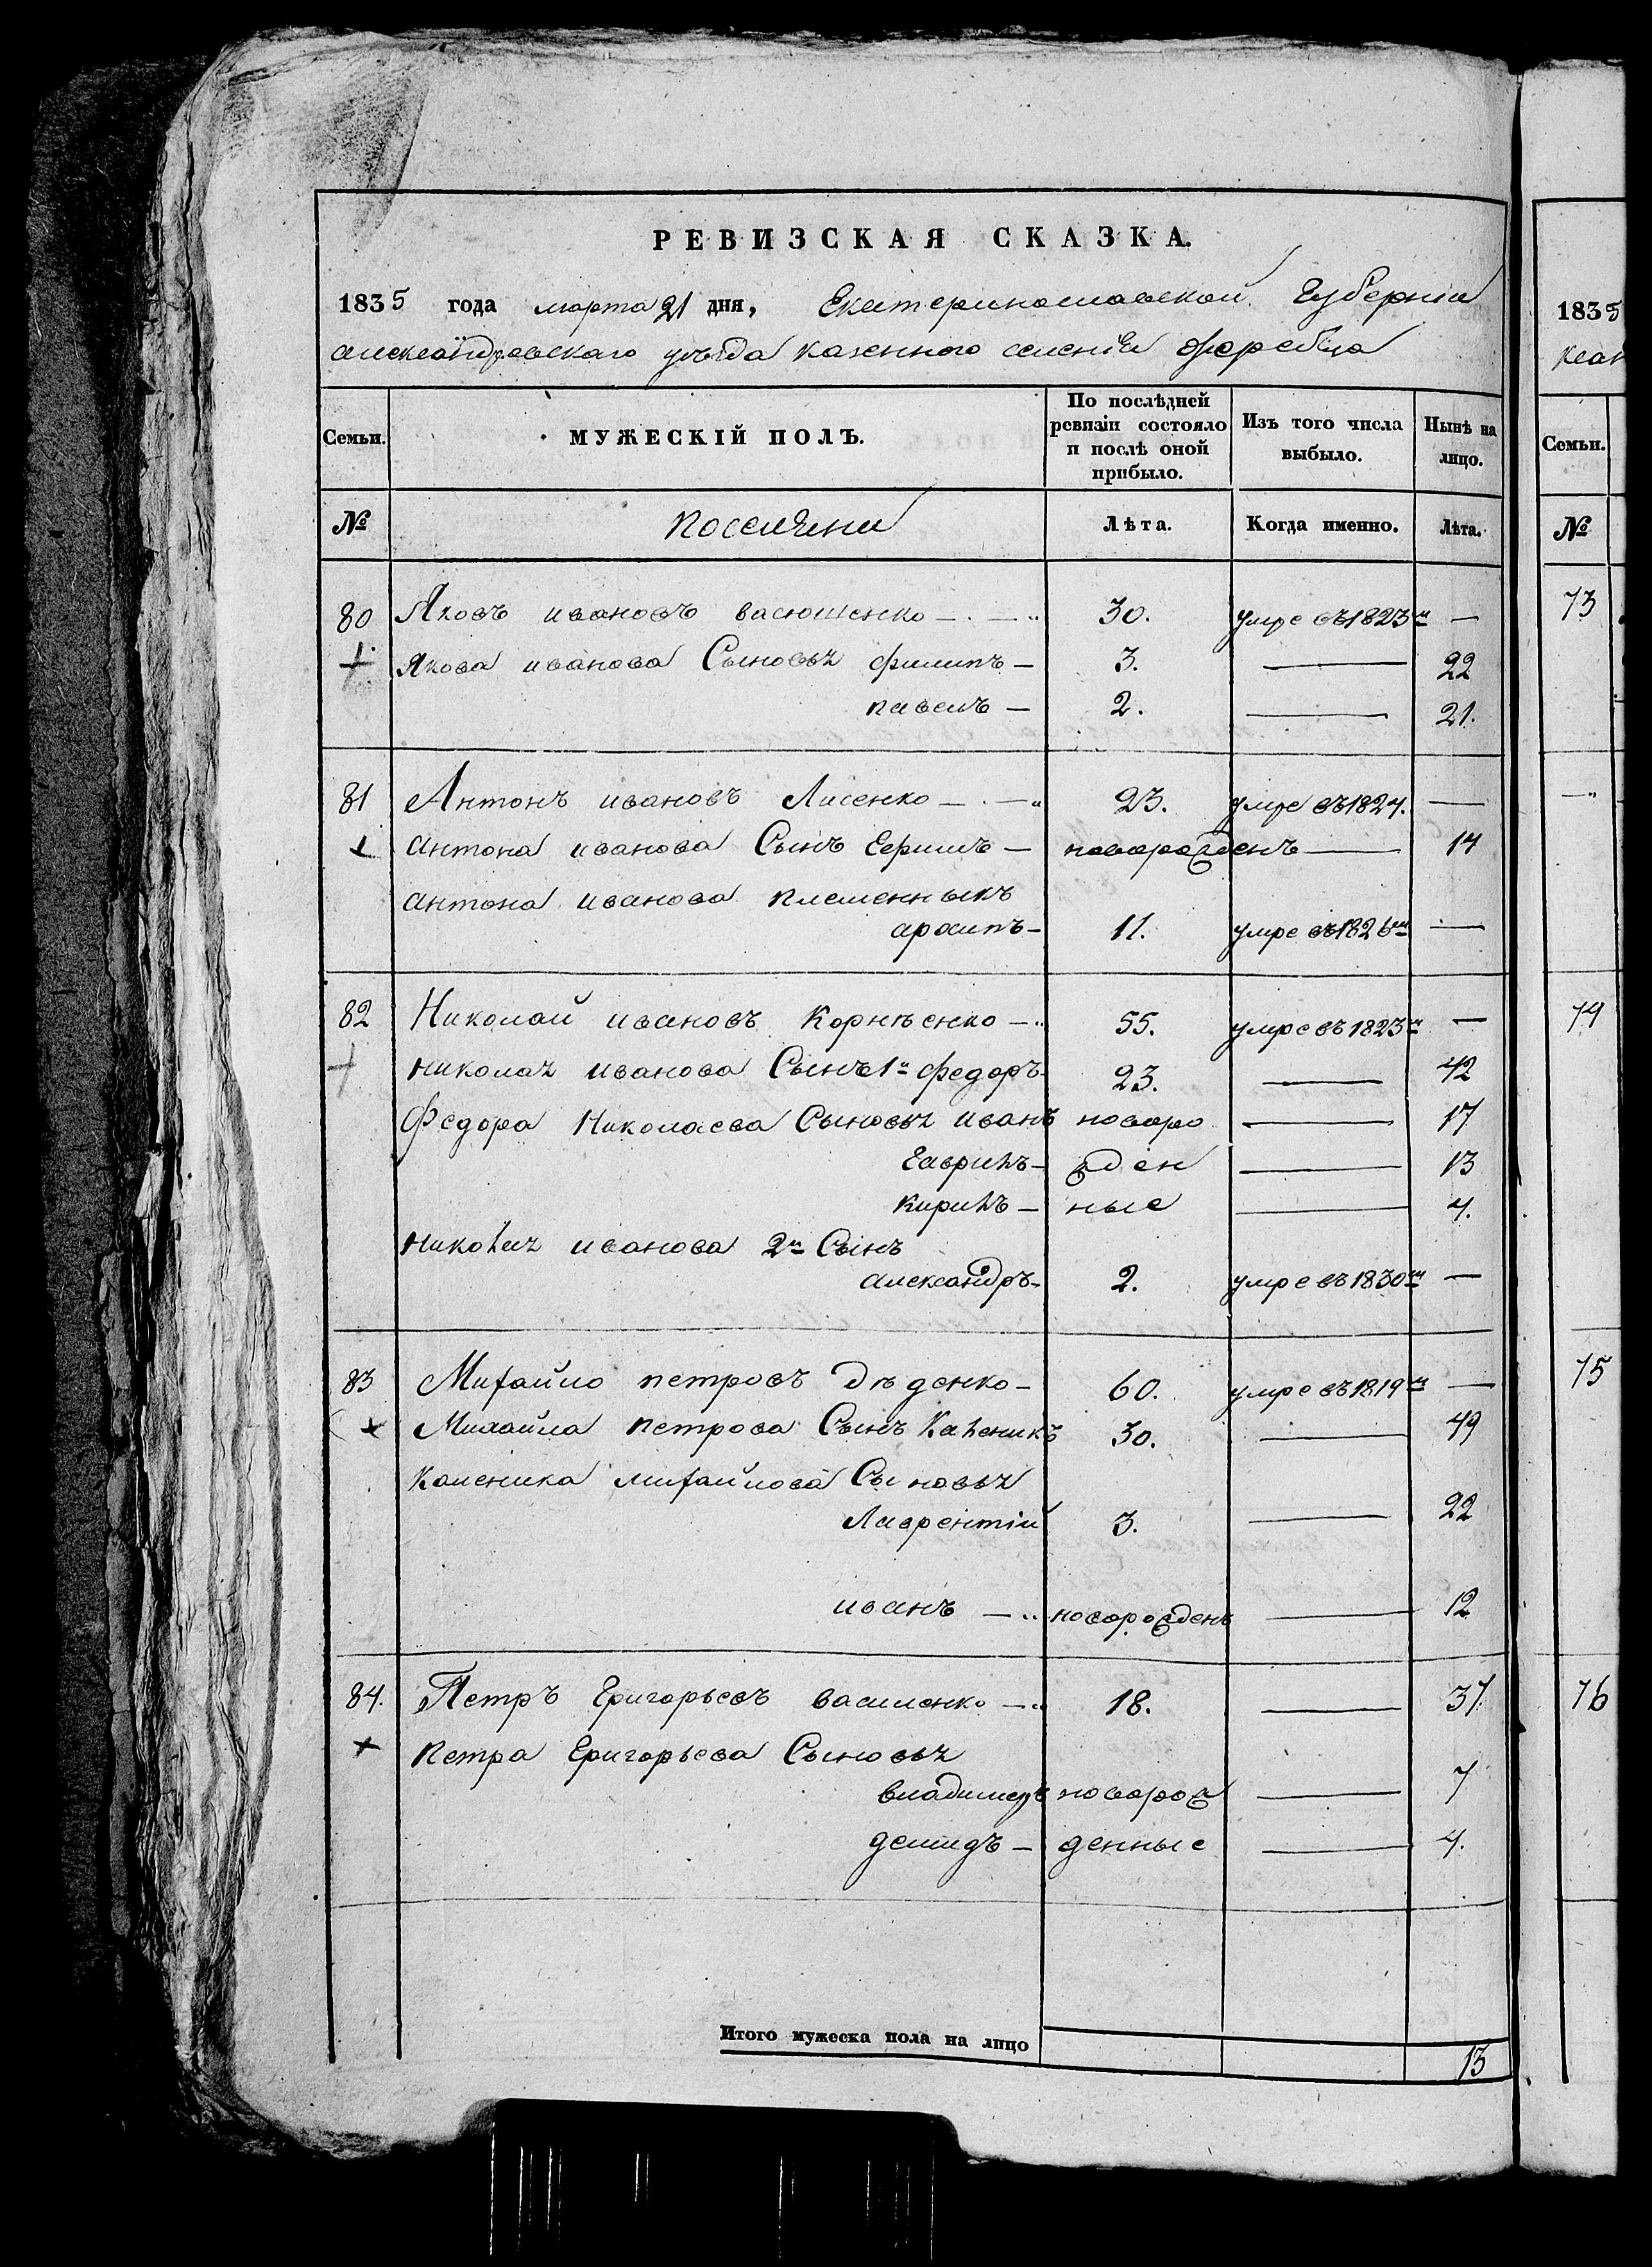 РЕВИЗСКАЯ СКАЗКА.
1835 года марта 21 дня, Екатеринославской Губерніи
александровскаго уѣзда казенного селенія Жеребца
Семьи. МУЖЕСКІЙ ПОЛЪ. По послѣдней ревизіи состояло и послѣ оной прибыло. Изъ того числа выбыло. Нынѣ на лицо.
№ поселяни Лѣта. Когда именно. Лѣта.
80 Яковъ ивановъ васюшенко — 30. умре въ 1823м —
+ Якова иванова Сыновья филипъ — 3. — 22
павелъ — 2. — 21.
81 Антонъ ивановъ Лисенко — 23. умре въ 1824. —
+ антона иванова Сынъ Ефимъ — новорожденъ — 14
антона иванова племенникъ
архипъ — 11. умре въ 1826м —
82 Николай ивановъ Корнѣенко — 55. умре въ 1823м —
+ николая иванова Сынъ 1й федоръ — 23. — 42
Федора Николаева Сыновья иванъ новоро — 17
Гаврилъ — жден — 13
Кирилъ — ные — 4.
николая иванова 2й Сынъ
александръ — 2. умре въ 1830м —
83 Михайло петровъ Дѣденко — 60. умре въ 1819м —
+ Михайла петрова Сынъ Каленикъ 30. — 49
Каленика михайлова Сыновья
Лаврентій 3. — 22
иванъ — новорожденъ — 12
84. Петръ Григорьевъ василенко — 18. — 37
+ петра Григорьева Сыновья
владимеръ новорож — 7
демидъ — денные — 4.
Итого мужеска пола на лицо 13
1835
Семьи.
№
73
74
75
76